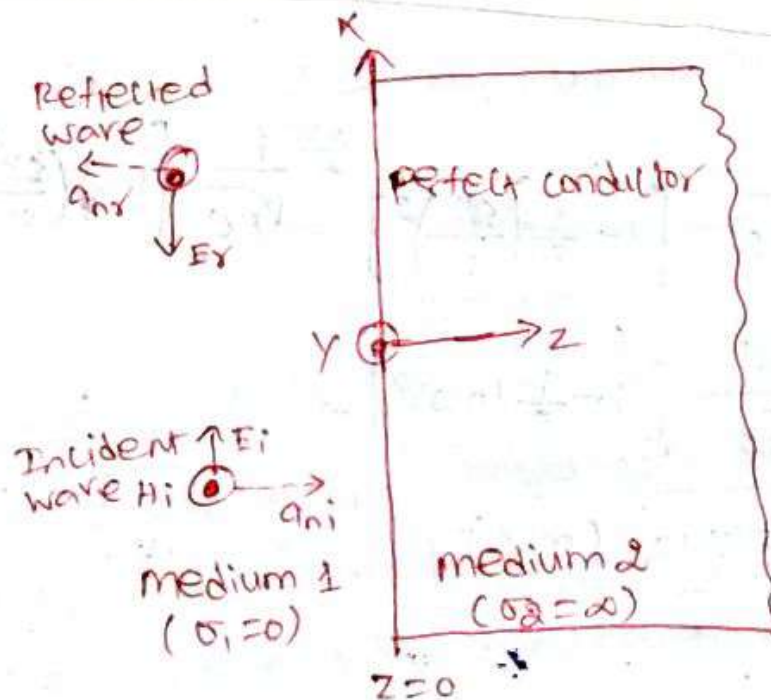 x
Reflected
wave
anr
Er
perfect conductor
Y
Z
Incident
wave Hi
Ei
ani
medium 1
(σ1=0)
medium 2
(σ2=∞)
Z=0